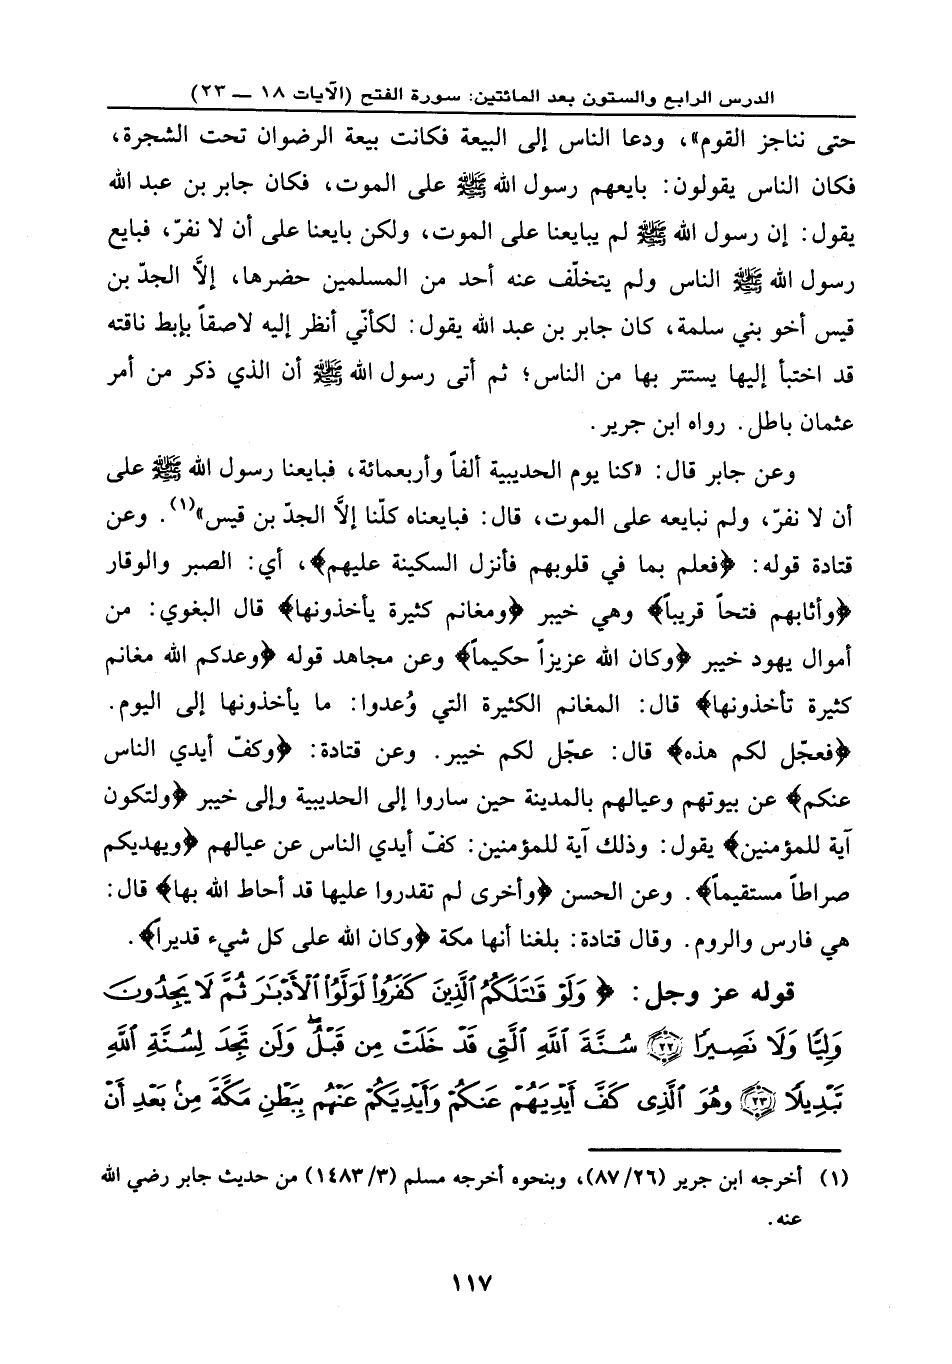 الدرس الرابع والستون بعد المائتين: سورة الفتح (الآيات ١٨ ــ ٢٣)
حتى نناجز القوم»، ودعا الناس إلى البيعة فكانت بيعة الرضوان تحت الشجرة،
فكان الناس يقولون: بايعهم رسول الله ﷺ على الموت، فكان جابر بن عبد الله
يقول: إن رسول الله ﷺ لم يبايعنا على الموت، ولكن بايعنا على أن لا نفرّ، فبايع
رسول الله ﷺ الناس ولم يتخلّف عنه أحد من المسلمين حضرها، إلاَّ الجدّ بن
قيس أخو بني سلمة، كان جابر بن عبد الله يقول: لكأنّي أنظر إليه لاصقاً بإبط ناقته
قد اختبأ إليها يستتر بها من الناس؛ ثم أتى رسول الله ﷺ أن الذي ذكر من أمر
عثمان باطل. رواه ابن جرير.
وعن جابر قال: «كنا يوم الحديبية ألفاً وأربعمائة، فبايعنا رسول الله ﷺ على
أن لا نفرّ، ولم نبايعه على الموت، قال: فبايعناه كلّنا إلاَّ الجدّ بن قيس»(١). وعن
قتادة قوله: ﴿فعلم بما في قلوبهم فأنزل السكينة عليهم﴾، أي: الصبر والوقار
﴿وأثابهم فتحاً قريباً﴾ وهي خيبر ﴿ومغانم كثيرة يأخذونها﴾ قال البغوي: من
أموال يهود خيبر ﴿وكان الله عزيزاً حكيماً﴾ وعن مجاهد قوله ﴿وعدكم الله مغانم
كثيرة تأخذونها﴾ قال: المغانم الكثيرة التي وُعدوا: ما يأخذونها إلى اليوم.
﴿فعجّل لكم هذه﴾ قال: عجّل لكم خيبر. وعن قتادة: ﴿وكفّ أيدي الناس
عنكم﴾ عن بيوتهم وعيالهم بالمدينة حين ساروا إلى الحديبية وإلى خيبر ﴿ولتكون
آية للمؤمنين﴾ يقول: وذلك آية للمؤمنين: كفّ أيدي الناس عن عيالهم ﴿ويهديكم
صراطاً مستقيماً﴾. وعن الحسن ﴿وأخرى لم تقدروا عليها قد أحاط الله بها﴾ قال:
هي فارس والروم. وقال قتادة: بلغنا أنها مكة ﴿وكان الله على كل شيء قديرا﴾.
قوله عز وجل: ﴿ وَلَوْ قَٰتَلَكُمُ ٱلَّذِينَ كَفَرُوا۟ لَوَلَّوُا۟ ٱلْأَدْبَٰرَ ثُمَّ لَا يَجِدُونَ
وَلِيًّا وَلَا نَصِيرًا ٢٢ سُنَّةَ ٱللَّهِ ٱلَّتِى قَدْ خَلَتْ مِن قَبْلُ ۖ وَلَن تَجِدَ لِسُنَّةِ ٱللَّهِ
تَبْدِيلًا ٢٣ وَهُوَ ٱلَّذِى كَفَّ أَيْدِيَهُمْ عَنكُمْ وَأَيْدِيَكُمْ عَنْهُم بِبَطْنِ مَكَّةَ مِنۢ بَعْدِ أَنْ
(١) أخرجه ابن جرير (٨٧/٢٦)، وبنحوه أخرجه مسلم (١٤٨٣/٣) من حديث جابر رضي الله
عنه.
١١٧